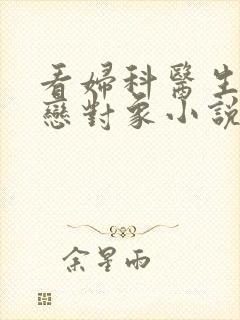 看婦科醫生
戀對象小說
余星雨